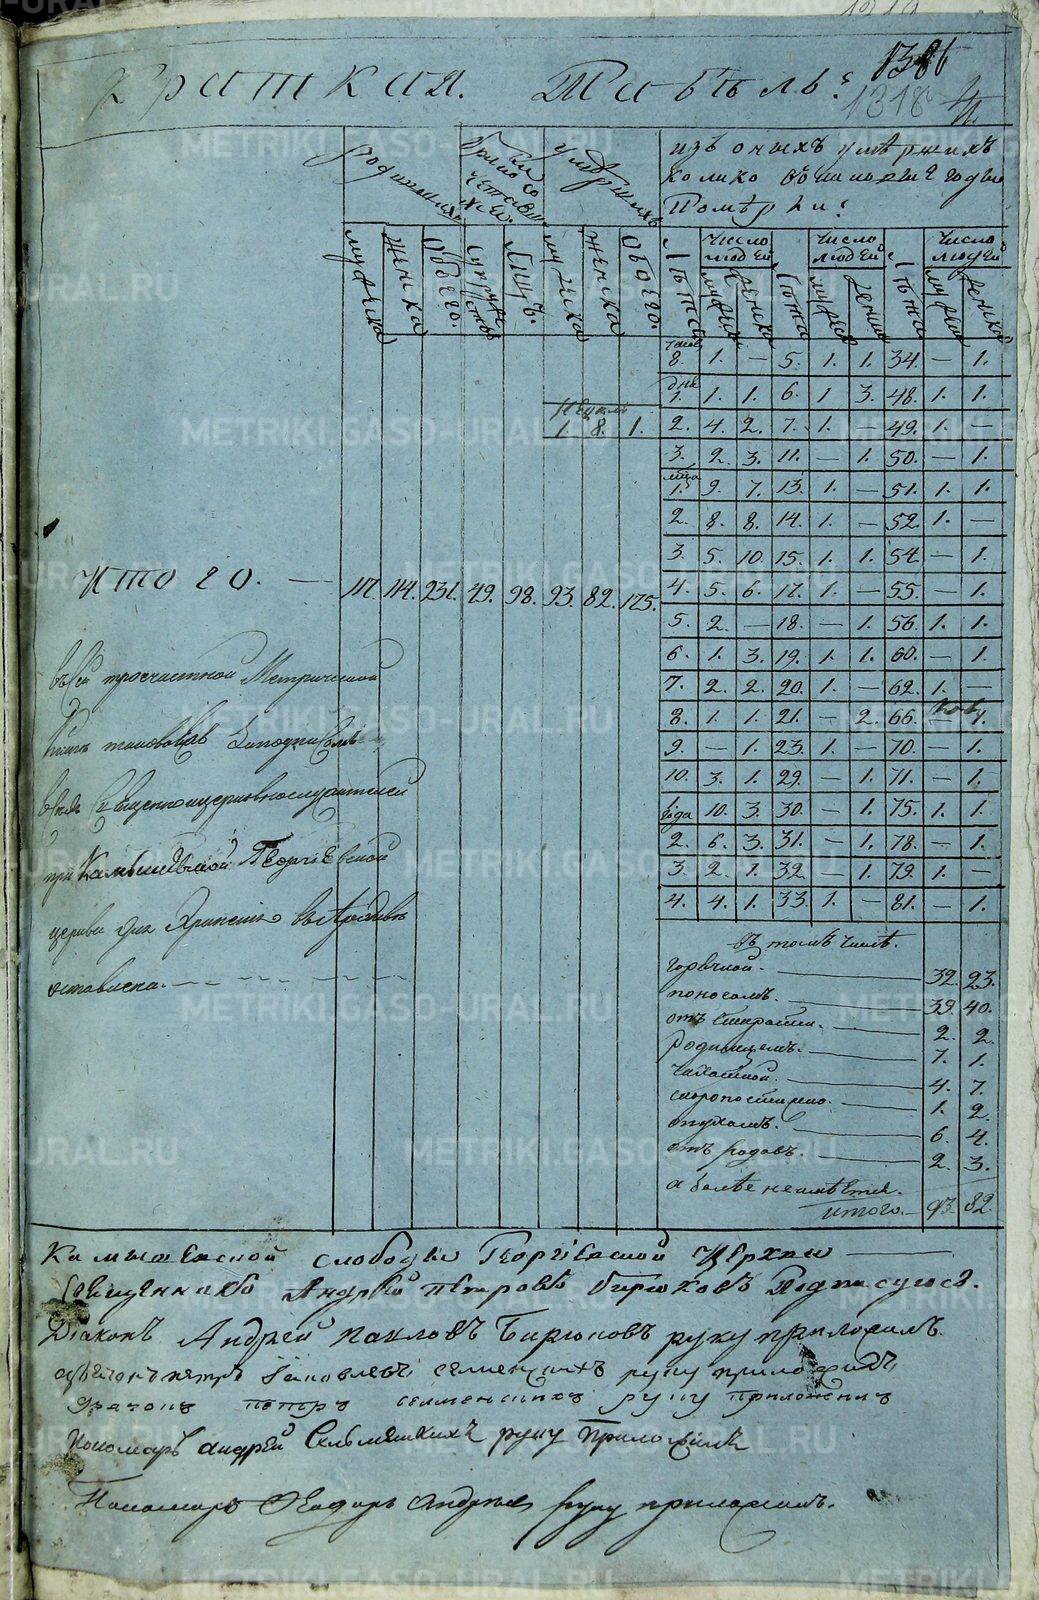 1386
1318
Краткая Табѣль:
родившихся
бракосочетавшихся
умершихъ
изъ оныхъ умѣршихъ
колико
Помѣрли:
мужеска
женска
обоего.
супружествъ
лицъ.
мужеска
женска
обоего.
Лѣта
число людей
мужеска
женска
Лѣта
число людей
мужеска
женска
Лѣта
число людей
мужеска
женска
часов 8. 1. — 5. 1. 1. 34. — 1.
дня 1. 1. 1. 6. 1 3. 48. 1. 1.
1. 8. 1.
2. 4. 2. 7. 1. — 49. 1. —
3. 2. 3. 11. — 1. 50. — 1.
мца 1. 9. 7. 13. 1. — 51. 1. 1.
2. 8. 8. 14. 1. — 52. 1. —
3. 5. 10. 15. 1. 1. 54. — 1.
Итого. — 117. 114. 231. 49. 98. 93. 82. 175.
4. 5. 6. 17. 1. — 55. — 1.
5. 2. — 18. — 1. 56. 1. 1.
6. 1. 3. 19. 1. 1. 60. — 1.
7. 2. 2. 20. 1. — 62. 1. —
8. 1. 1. 21. — 2. 66. 1.
9. — 1. 23. 1. — 70. — 1.
10. 3. 1. 29. — 1. 71. — 1.
года 1. 10. 3. 30. — 1. 75. 1. 1.
2. 6. 3. 31. — 1. 78. — 1.
3. 2. 1. 32. — 1. 79. 1. —
4. 4. 1. 33. 1. — 81. — 1.
въ сей троечастной Метрической
Книгѣ таковова за подписомъ
всехъ Священноцерковнослужителей
при Камышевской Георгіевской
церкви для Хранения въ Архивѣ
оставлена.
въ томъ числѣ.
горячкой. — 32. 23.
поносомъ. — 39. 40.
2. 2.
родимцемъ. — 7. 1.
чахоткой. — 4. 7.
скоропостижно. — 1. 2.
опухомъ. — 6. 4.
отъ родовъ. — 2. 3.
а болѣе неимѣется.
итого. — 93. 82.
Камышевской слободы Георгіевской Церкви
Священникъ Андрей Петровъ Бирюковъ Подписуюсь.
Діаконъ Андрей Павловъ Бирюковъ руку приложилъ.
дьячокъ петръ Яковлевъ селменскихъ руку приложилъ
дьячокъ петръ селменскихъ руку приложилъ
пономарь андрей Сельменскихъ руку приложилъ
Пономарь Ѳеодоръ Андреевъ руку приложилъ.
METRIKI.GASO-URAL.RU